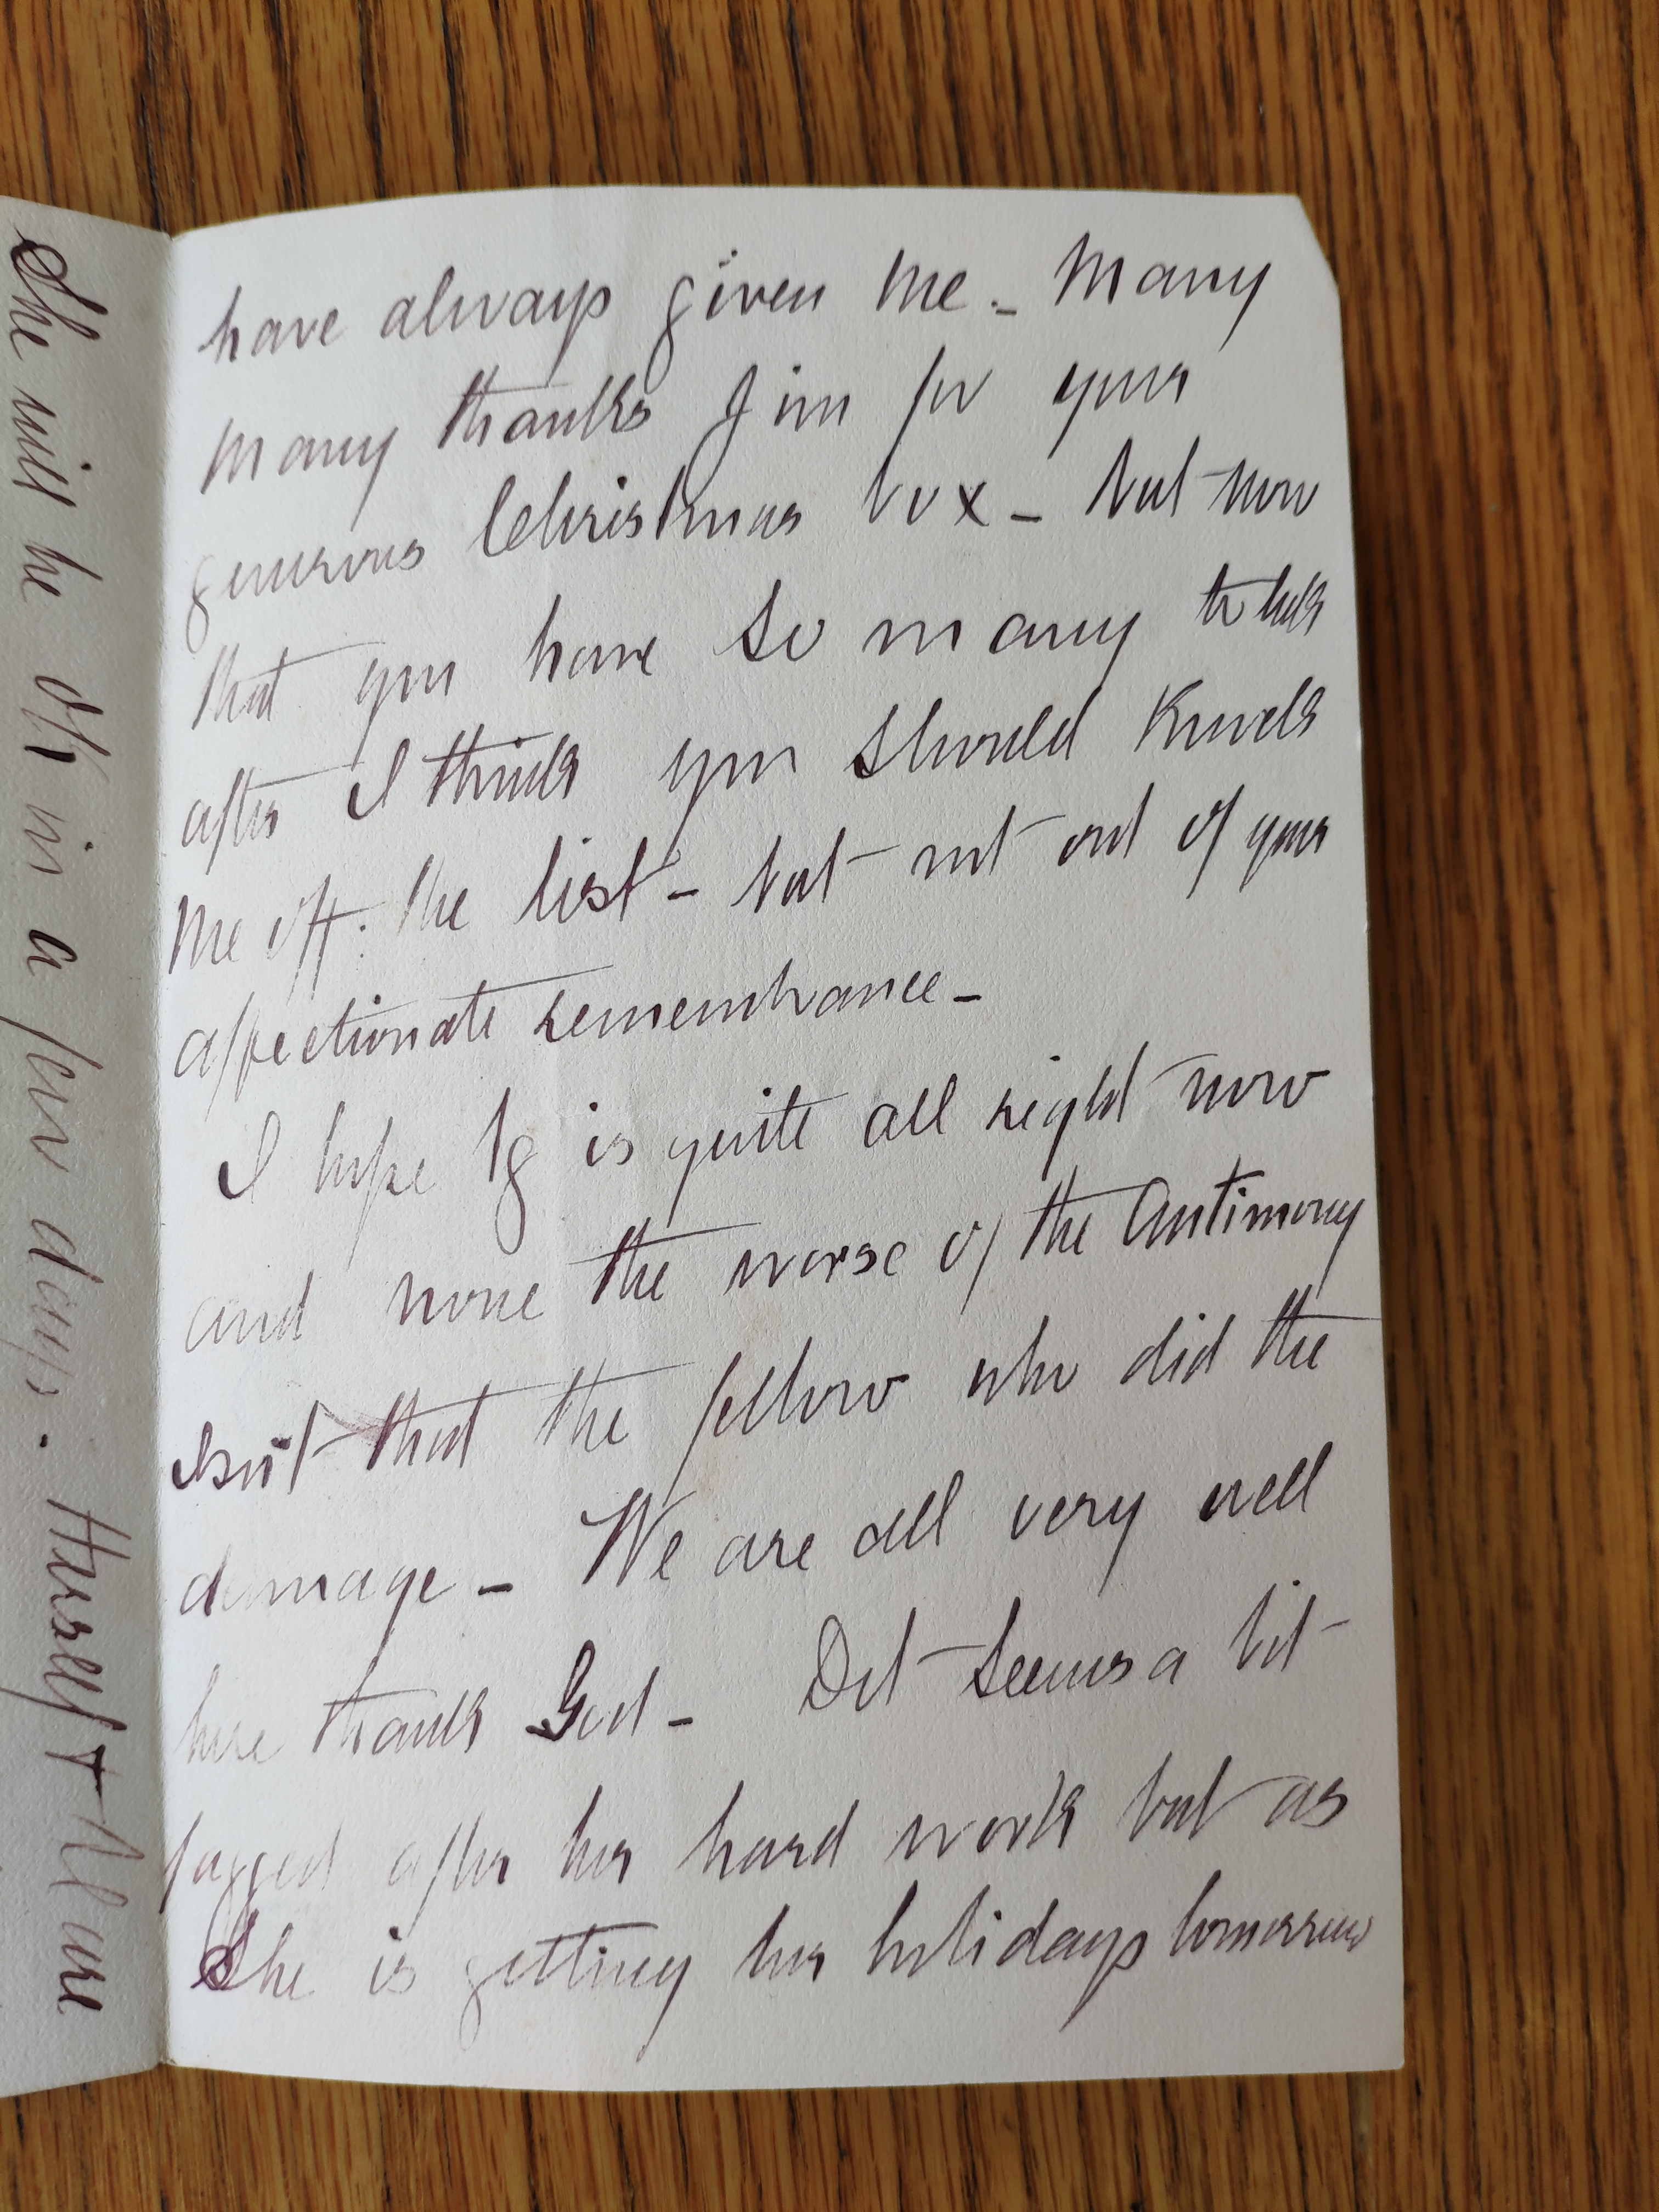 have always given me - Many
many thanks Jim for your
generous Christmas box - but now
that you have so many to look
after I think you should knock
me off the list - but not out of your
affectionate remembrance -
I hope Ig is quite all right now
and none the worse of the Antimony
Isn't that the fellow who did the
damage - We are all very well
here thank God - Dot seems a bit
fagged after her hard work but as
She is getting her holidays tomorrow
She will be ok in a few days. Herself +
are